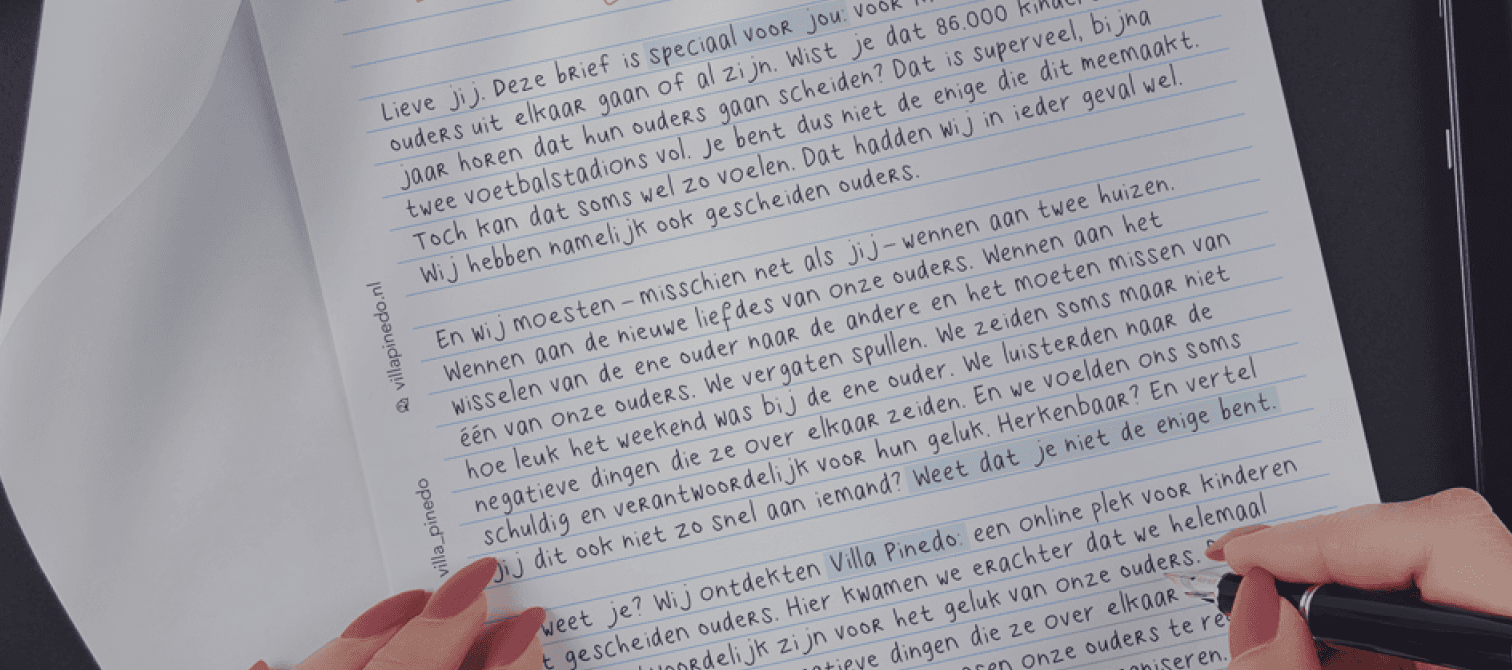 Lieve jij. Deze brief is speciaal voor jou: voor
ouders uit elkaar gaan of al zijn. Wist je dat 86.000
jaar horen dat hun ouders gaan scheiden? Dat is superveel, bijna
twee voetbalstadions vol. Je bent dus niet de enige die dit meemaakt.
Toch kan dat soms wel zo voelen. Dat hadden wij in ieder geval wel.
Wij hebben namelijk ook gescheiden ouders.
En wij moesten – misschien net als jij – wennen aan twee huizen.
Wennen aan de nieuwe liefdes van onze ouders. Wennen aan het
wisselen van de ene ouder naar de andere en het moeten missen van
één van onze ouders. We vergaten spullen. We zeiden soms maar niet
hoe leuk het weekend was bij de ene ouder. We luisterden naar de
negatieve dingen die ze over elkaar zeiden. En we voelden ons soms
schuldig en verantwoordelijk voor hun geluk. Herkenbaar? En vertel
jij dit ook niet zo snel aan iemand? Weet dat je niet de enige bent.
weet je? Wij ontdekten Villa Pinedo: een online plek voor kinderen
gescheiden ouders. Hier kwamen we erachter dat we helemaal
zijn voor het geluk van onze ouders.
dingen die ze over elkaar
onze ouders te
villapinedo.nl
villa_pinedo